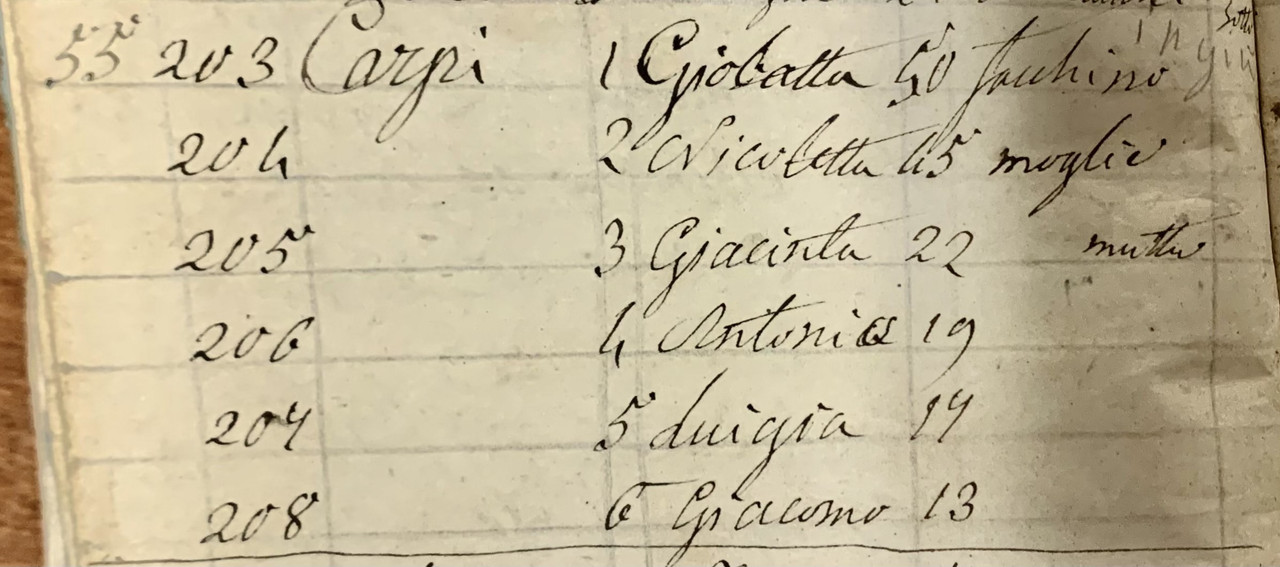 55 203 Carpi 1 Giobatta 50 facchino in giù
204 2 Nicoletta 45 moglie
205 3 Giacinta 22 mutta
206 4 Antonia 19
207 5 Luigia 17
208 6 Giacomo 13